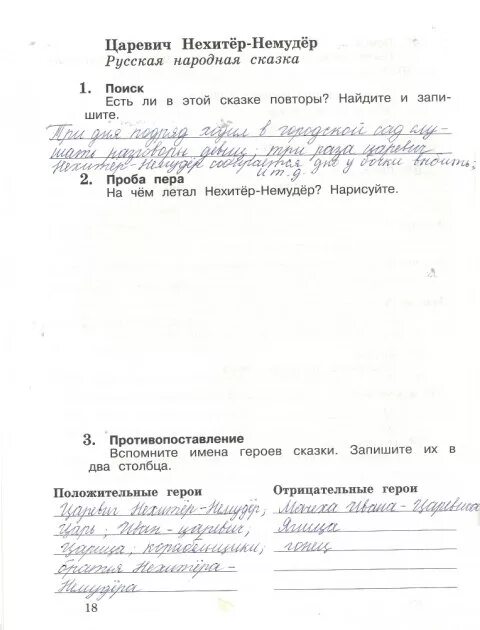 Царевич Нехитёр-Немудёр
Русская народная сказка
1. Поиск
Есть ли в этой сказке повторы? Найдите и запи-
шите.
Три дня подряд ходил в городской сад слу-
шать разговоры девиц; три раза царевич
Нехитёр-Немудёр собирается дно у бочки выбить;
и т.д.
2. Проба пера
На чём летал Нехитёр-Немудёр? Нарисуйте.
3. Противопоставление
Вспомните имена героев сказки. Запишите их в
два столбца.
Положительные герои
Царевич Нехитёр-Немудёр,
Царь, Иван-царевич,
Царица, корабельщики,
братья Нехитёра-
Немудёра
Отрицательные герои
Мачеха Ивана-Царевича
Ягища
гонец
18